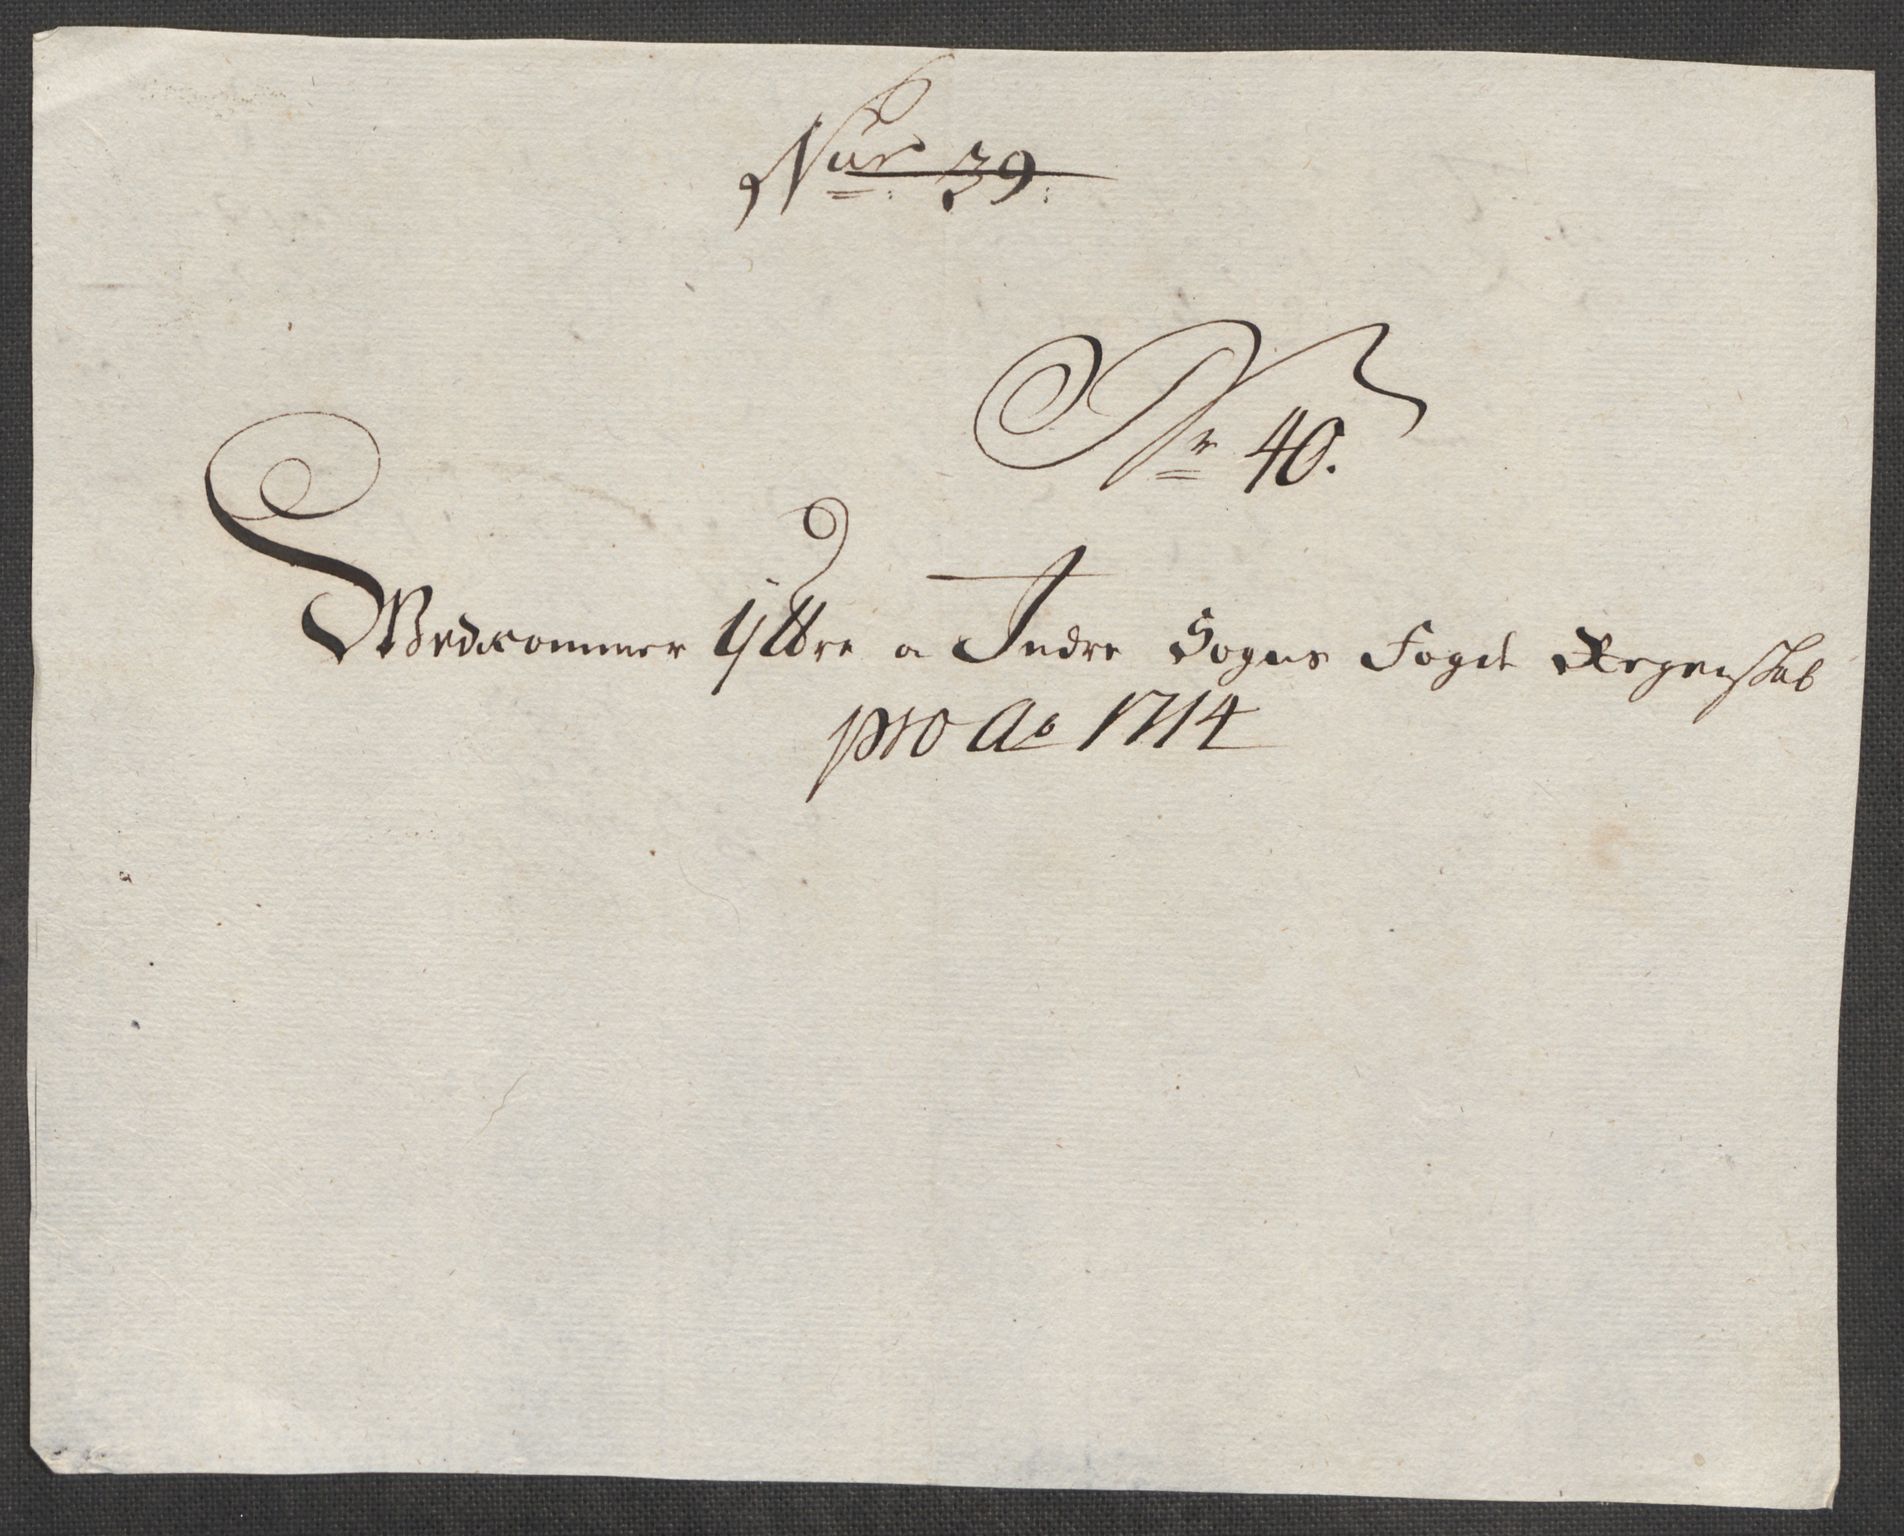 Nur 39:
Nr 40.
Wedkommer Yttre a Indre Sogns Fogit Regenskab
pro Ao 1714